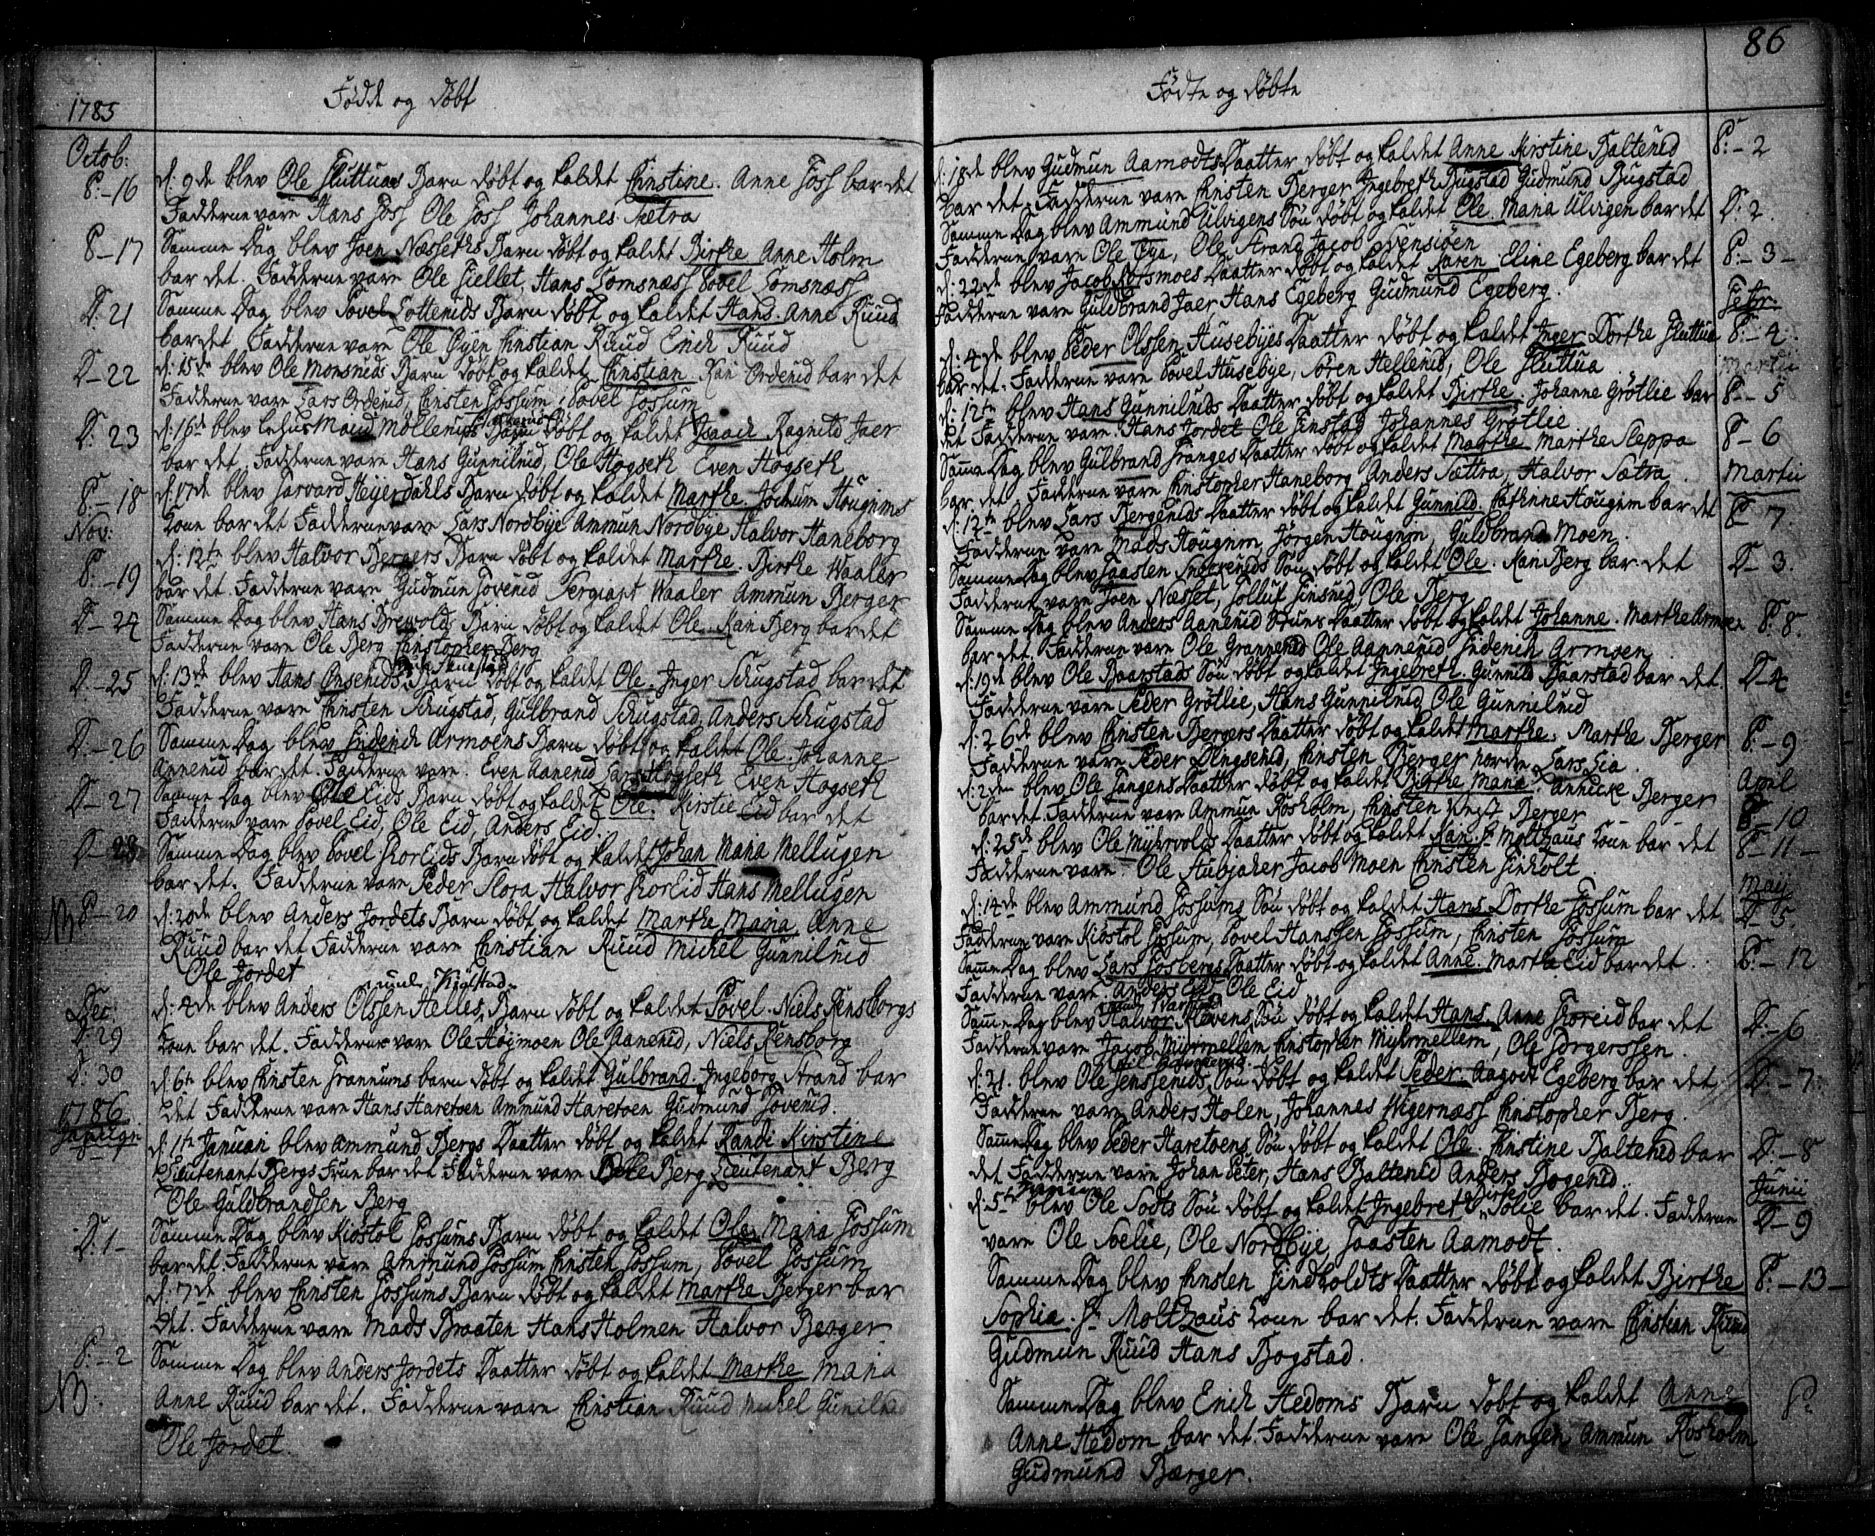 1785
Födde og döbt
Octob:
P: - 16 d: 9de blev Ole Sluttuas Barn döbt og kaldet Christine. Anne Foss bar det
Fadderne vare Hans Foss Ole Foss Johannes Sætra
P - 17 Samme Dag blev Joen Næsseths Barn döbt og kaldet Birthe Anne Holm
bar det. Fadderne vare Ole Fiellet, Hans Tomsnæss Povel Tomsnæss
D: 21 Samme Dag blev Povel Barn döbt og kaldet Hans. Anne Ruud
bar det Fadderne vare Ole Øyen Christian Ruud Erich Ruud
D - 22 d: 15de blev Ole Monsruds Barn döbt og kaldet Christian. Kari Ordenid bar det
Fadderne vare Lars Ordenid, Christen Fossum, Povel Fossum
D: 23 d: 16de blev Barn döbt og kaldet Isaach Ragnild Jaer
bar det. Fadderne vare Hans Gunnilrud, Ole Hogseth Even Hogseth
P: - 18 d: 17de blev Heyerdahls Barn döbt og kaldet Marthe. Jochum Hougnems
Kone bar det Fadderne vare Lars Nordbye Ammun Nordbye Halvor Haneborg
Nov:
P: - 19 d: 12te blev Halvor Bergers Barn döbt og kaldet Marthe. Birthe Waaler
bar det. Fadderne vare Gudmun Sergiant Waaler Ammun Berger
D - 24 Samme Dag blev Hans Barn döbt og kaldet Ole. Kari Berg bar det
Fadderne vare Ole Berg Christopher Berg
D - 25 d: 13de blev Hans Barn döbt og kaldet Ole. Inger Skugstad bar det
Fadderne vare Christen Skugstad, Gulbrand Skugstad, Anders Skugstad
D - 26 Samme Dag blev Friderich Armoens Barn döbt og kaldet Ole. Johanne
Annerud bar det. Fadderne vare. Even Aanerud Lars Hogseth Even Hogseth
D - 27 Samme Dag blev Ole Eids Barn döbt og kaldet Ole. Kirstie Eid bar det
Fadderne vare Povel Eid, Ole Eid, Anders Eid.
D - 28 Samme Dag blev Povel Barn döbt og kaldet Johan Maria Mellugen
bar det. Fadderne vare Peder Flora Halvor Hans Mellugen
NB P - 20 d: 20de blev Anders Jordets Barn döbt og kaldet Marthe Maria Anne
Ruud bar det Fadderne vare Christian Ruud Michel Gunnilrud
Ole Jordet
Dec:
D: 29 d: 4de blev Anders Olssen Helles, Barn döbt og kaldet Povel. Niels Rensborgs
Kone bar det. Fadderne vare Ole Höymoen Ole Aanerud, Niels Rensborg
D: 30 d: 6te blev Christen barn döbt og kaldet Gulbrand. Ingeborg Strand bar
det Fadderne vare Hans Haretoen Ammund Haretoen Gudmund
1786
d: 1te Januari blev Ammund Bergs Daatter döbt og kaldet Randi Kirstine
Lieutenant Bergs Frue bar det Fadderne vare Berg Lieutenant Berg
Ole Guldbrandsen Berg
D: 1 - Samme Dag blev Kiöstol Fossums Barn döbt og kaldet Ole. Maria Fossum
bar det. Fadderne vare Ammund Fossum Christen Fossum, Povel Fossum
d: 7de blev Christen Fossums Barn döbt og kaldet Marthe Berger bar
det. Fadderne vare Mads Braaten Hans Holmen Halvor Berger
P: - 2 Samme Dag blev Anders Jordets Daatter döbt og kaldet Marthe Maria
NB. Anne Ruud bar det. Fadderne vare Christian Ruud Michel Gunilrud
Ole Jordet.
86
Födte og döbte
d: 18de blev Gudmun Aamodts Daatter döbt og kaldet Anne Kirstine Balterud P: - 2
bar det. Fadderne vare Christen Berger Ingebreth Bugstad Gudmund Bugstad
Samme Dag blev Ammund Ulvigens Sön döbt og kaldet Ole. Maria Ulvigen bar det D: 2
Fadderne vare Ole Øya, Ole Strand Jacob
d: 22de blev Jacob Daatter döbt og kaldet Karen Eline Egeberg bar det P: - 3 -
Fadderne vare Guldbrand Jaer, Hans Egeberg Gudmund Egeberg.
Febr.
d: 4de blev Peder Olssen Husebyes Daatter döbt og kaldet Inger Dorthe Sluttua P: - 4
bar det. Fadderne vare Povel Husebye, Sören Hellerud, Ole Sluttua
Martii
d: 12te blev Hans Gunnilruds Daatter döbt og kaldet Birthe. Johanne Grötlie bar P: - 5
det Fadderne vare. Hans Jordet Ole Finstad Johannes Grötlie
Samme Dag blev Gulbrand Daatter döbt og kaldet Marthe Marthe Sleppa P - 6
bar det Fadderne vare Christopher Haneborg Anders Sættra, Halvor Sætra Martii
d: 12te blev Lars Bergeruds Daatter döbt og kaldet Gunnild Hougem bar det P 7.
Fadderne vare Mads Hougnem Jörgen Hougnem, Guldbrand Moen.
Samme Dag blev Sön döbt og kaldet Ole. Kari Berg bar det D - 3.
Fadderne vare Joen Næsset, Ole Berg
Samme Dag blev Anders Aanerud Daatter döbt og kaldet Johanne. Marthe Armoen P: 8.
bar det. Fadderne vare Ole Grannerud Ole Aannerud Friderich Armoen
d: 19de blev Ole Baarstads Sön döbt og kaldet Ingebreth. Gunnild Baarstad bar det D - 4
Fadderne vare Peder Grötlie, Hans Gunnilrud Ole Gunnilrud
d: 26de blev Christen Bergers Daatter döbt og kaldet Marthe. Marthe Berger P: - 9
Fadderne vare Peder Christen Berger nordre Lars Lia.
April
d: 2den blev Ole Tangens Daatter döbt og kaldet Birthe Maria. Annicke Berger
bar det. Fadderne vare Ammun Rosholm, Christen Berger P - 10
d: 25de blev Ole Myhrvolds Daatter döbt og kaldet Kari. Hr. Molthaus Kone bar det P - 11 -
Fadderne vare. Ole Stubjaher Jacob Moen Christen Linholt.
Maij
d: 14de blev Ammund Fossums Sön döbt og kaldet Hans Dorthe Fossum bar det D - 5
Fadderne vare Kiöstol Fossum, Povel Hanssen Fossum, Christen Fossum
Samme Dag blev Lars Fosbergs Daatter döbt og kaldet Anne. Marthe Eid bar det P: - 12
Fadderne vare. Anders Eid Ole Eid
Samme Dag blev Halvor Klevens Sön döbt og kaldet Hans Anne bar det D - 6
Fadderne vare Jacob Myhrmellem Christopher Myhrmellem, Ole Jörgerssen.
d: 21. blev Ole Jenseruds Sön döbt og kaldet Peder. Aagodt Egeberg bar det D - 7
Fadderne vare Anders Holen, Johannes Wigernæss Christopher Berg.
Samme Dag blev Peder Haretoens Sön döbt og kaldet Ole. Christine Balterud bar D - 8
det Fadderne vare Johan Peter, Hans Balterud Anders Bogerud.
Junii
d: 5te blev Ole Sodts Sön döbt og kaldet Ingebret Solie bar det. Fadderne D - 9
vare Ole Soelie, Ole Nordbye, Aamodt.
Samme Dag blev Christen Lindholdts Daatter döbt og kaldet Birthe P: - 13 -
Sophia. Hr. Molthaus Kone bar det. Fadderne vare Christian Ruud
Gudmun Ruud Hans Bogstad.
Samme Dag blev Erich Hedoms Barn döbt og kaldet Anne P
Anne Hedom bar det. Fadderne vare Ole Tangen Ammun Rosholm
Gudmund Bærger.